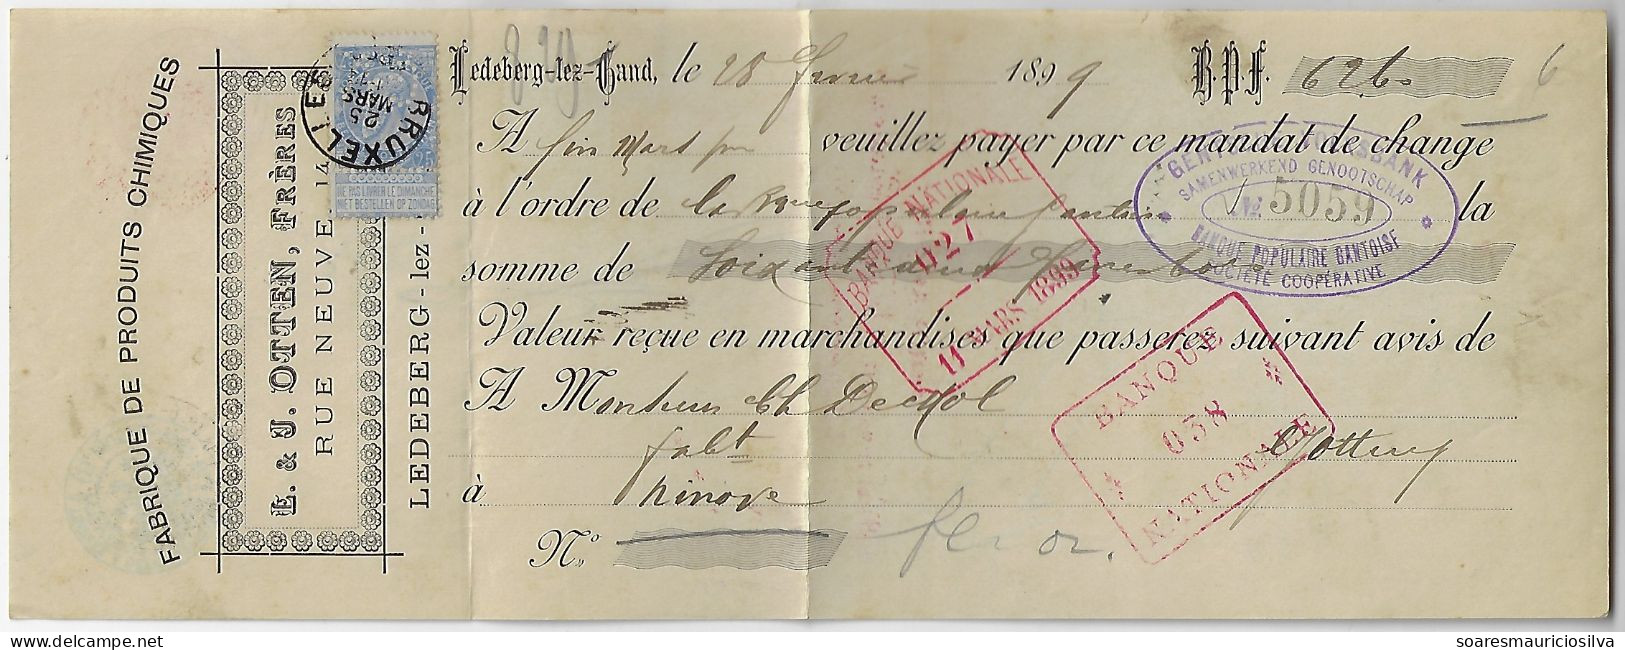 FABRIQUE DE PRODUITS CHIMIQUES
E. & J. OTTEN, FRÈRES
RUE NEUVE, 14
LEDEBERG-lez-
25
MARS
NE PAS LIVRER LE DIMANCHE
NIET BESTELLEN OP ZONDAG
829
Ledeberg-lez-Gand, le 28 février 1899 B.P.F. 62.60
6
A fin Mars veuillez payer par ce mandat de change
à l'ordre de la Bque populaire gantoise la
somme de Soixante deux francs
Valeur reçue en marchandises que passerez suivant avis de
A Monsieur Ch De
fabt
à Ninove
N°
BANQUE NATIONALE
027
11 MARS 1899
SAMENWERKEND GENOOTSCHAP
No 5059
BANQUE POPULAIRE GANTOISE
SOCIÉTÉ COOPÉRATIVE
BANQUE
038
NATIONALE
soaresmauriciosilva